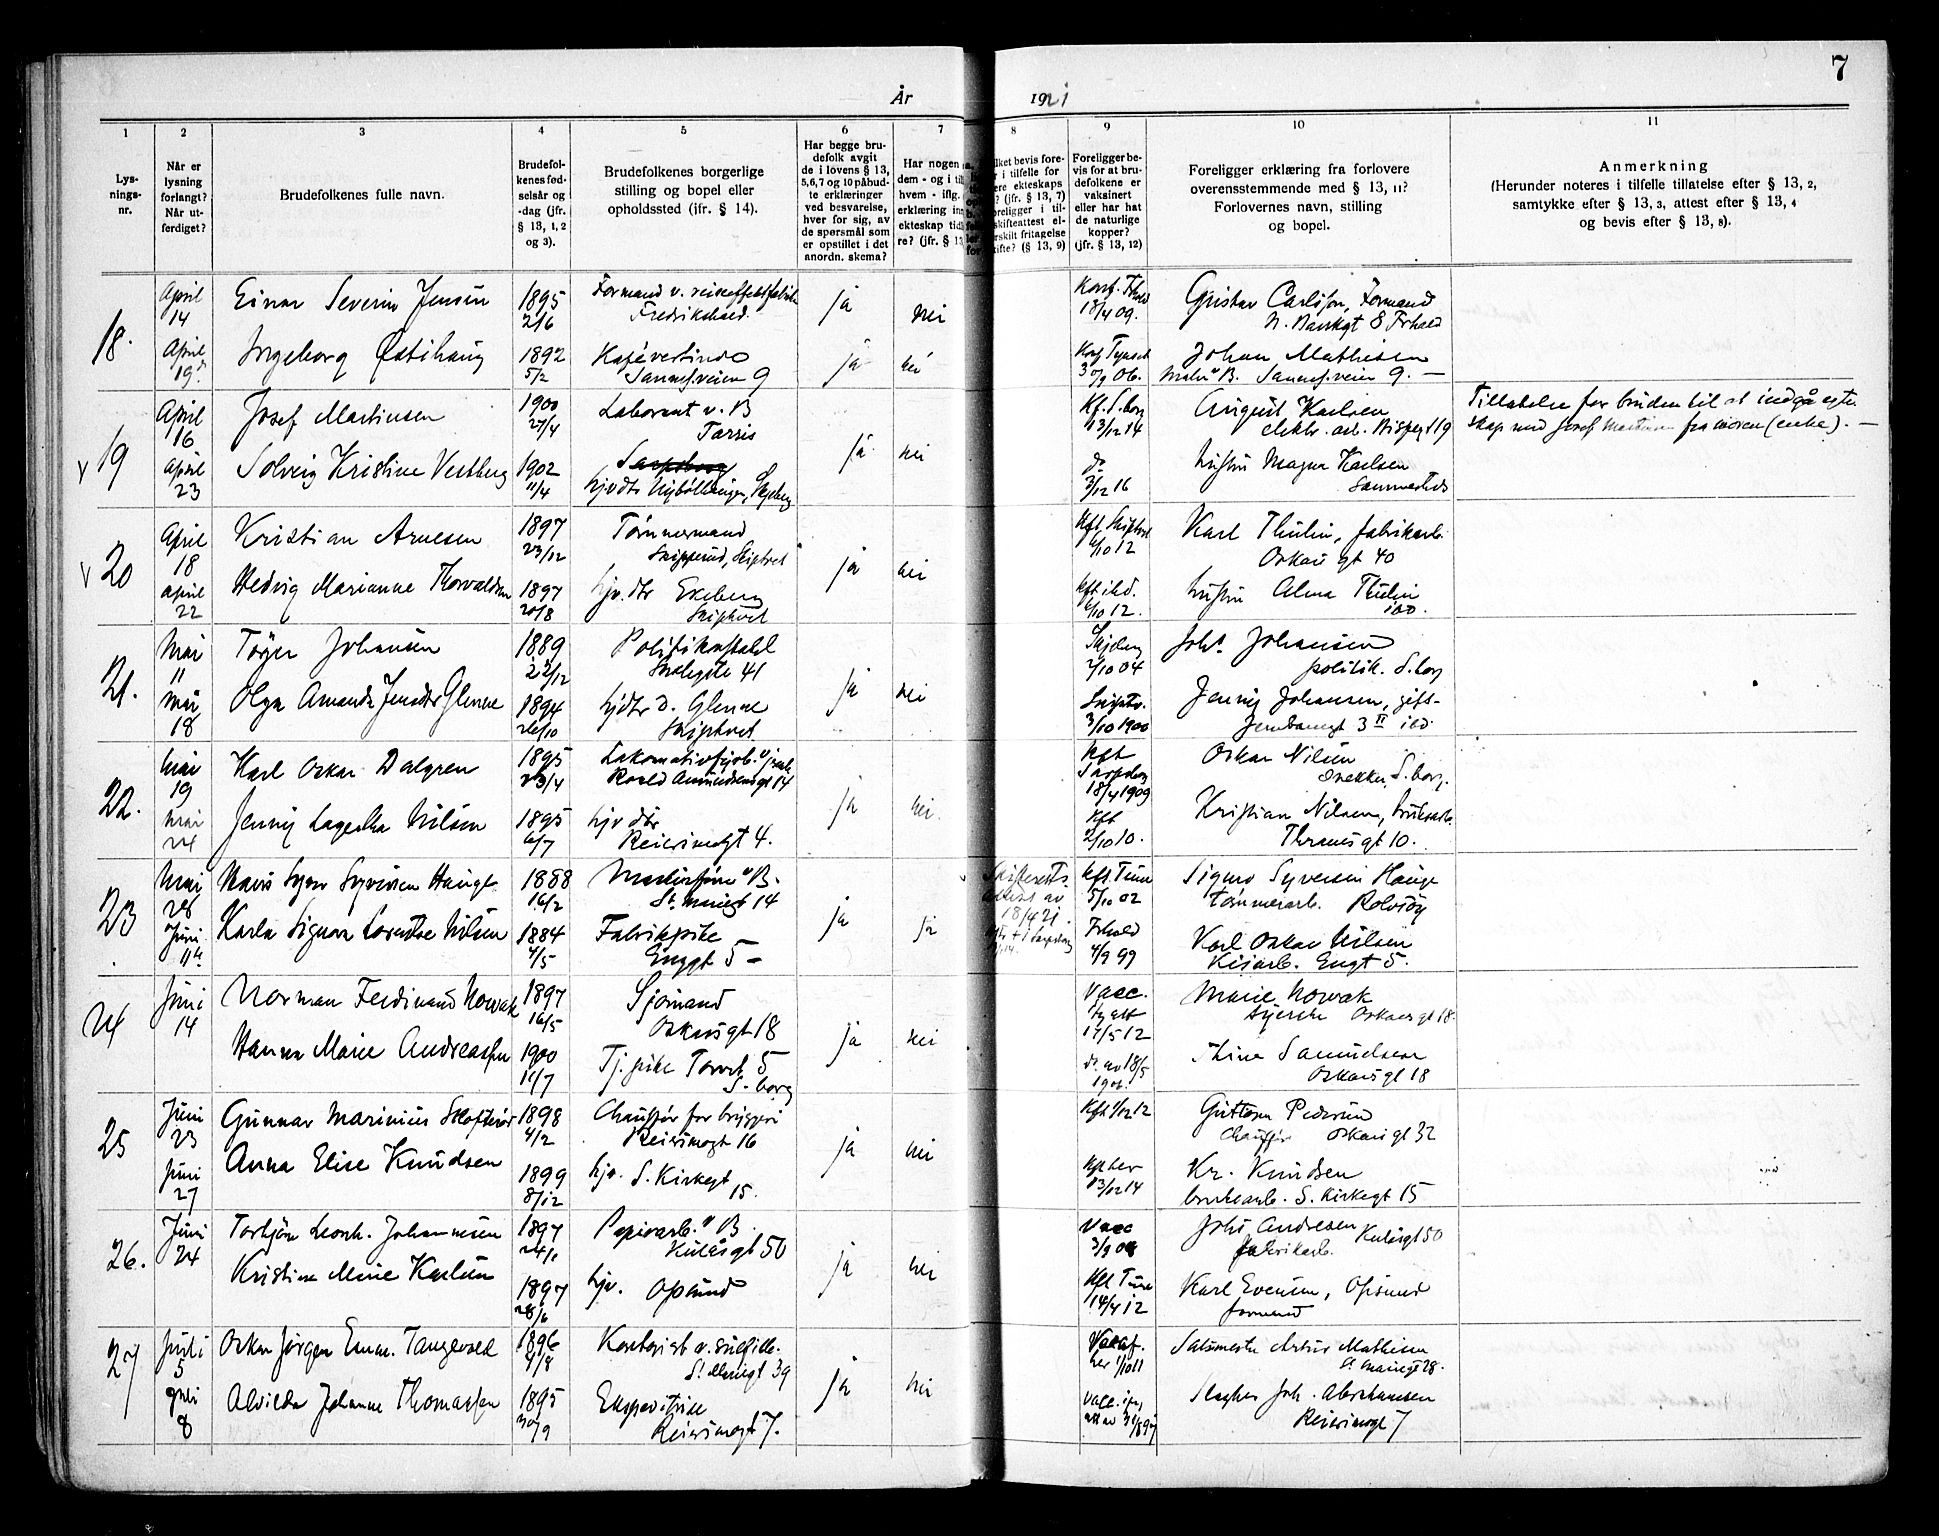 7
År 1921
1 2 3 4 5 6 7 8 9 10 11
Lys-
nings-
nr.
Når er
lysning
forlangt?
Når ut-
ferdiget?
Brudefolkenes fulle navn.
Brudefol-
kenes fød-
selsår og
-dag (jfr.
§ 13, 1, 2
og 3).
Brudefolkenes borgerlige
stilling og bopel eller
opholdssted (jfr. § 14).
Har begge bru-
defolk avgit
de i lovens § 13,
5,6,7 og 10 påbud-
te erklæringer
ved besvarelse,
hver for sig, av
de spørsmål som
er opstillet i det
anordn. skema?
Har nogen
dem - og i til
hvem - iflg.
erklæring in
ekteskap tid
re? (jfr. § 13
lket bevis fore-
r i tilfelle for
ere ekteskaps
? (jfr. § 13, 7)
oreligger i til-
skifteattest el-
rskilt fritagelse
ifte? (§ 13, 9)
Foreligger be-
vis for at bru-
defolkene er
vaksinert
eller har hat
de naturlige
kopper?
(jfr. § 13, 12)
Foreligger erklæring fra forlovere
overensstemmende med § 13, 11?
Forlovernes navn, stilling
og bopel.
Anmerkning
(Herunder noteres i tilfelle tillatelse efter § 13, 2,
samtykke efter § 13, 3, attest efter § 13, 4
og bevis efter § 13, 8).
18.
April
14
April
19
Einar Severin Jensen
1895
2/6
Formand v. reiseeffektfabrik
Fredrikshald.
ja
nei
Konf. Frhald
18/4 09.
Gustav Carlsson, Formand
N. Bankgt 8 Frhald
Ingeborg Østihaug
1892
5/2
Kaféværtinde
Sannes.veien 9
ja
nei
Johan Mathisen
Maler v B. Sannes.veien 9. —
19
April
16
April
23
Josef Martinsen
1900
27/4
Laborant v. B
Tarris
ja
nei
Kf. S.borg
13/12 14
August Karlsen
elektr. arb. Bispegt 19
Tillatelse for bruden til at indgå ekte-
skap med Josef Martinsen fra moren (enke). —
Solveig Kristine Vestberg
1902
11/4
Sarpsborg
do
3/12 16
hustru Magna Karlsen
sammesteds
20
April
18
April
22
Kristian Arnesen
1897
23/12
Tømmermand
Skipperud, Skiptvet
ja
nei
Kft. Skiptvet
6/10 12
Karl Thulin, fabrikarb.
Oskars gt 40
Hedvig Marianne Thorvaldsen
1897
20/8
hjv. dtr Ekeberg
Skiptvet
kft ibd.
6/10 12.
hustru Alma Thulin
ibd.
21.
Mai
11
Mai
18
Johansen
1889
22/12
Politikonstabel
Storgate 41
ja
nei
2/10 04
Johs. Johansen
politik. S.borg
Olga Amanda Jensdtr Glenne
1894
26/10
hjdtr d. Glenne
Skiptvet
Skiptv.
3/10 1900
Jenny Johansen, gift-
Jernbanegt 3 II ibd.
22.
Mai
19
Mai
24
Karl Oskar Dalgren
1895
23/4
Roald Amundsensgt 14
ja
nei.
Kft
Sarpsborg
18/4 1909
Oskar Nilsen
snekker, S.borg.
Jenny Lagertha Nilsen
1895
6/7
hjv dtr
Reiersensgt 4.
Kft
2/10 10.
Kristian Nilsen, bruksarb.
Thranesgt 10.
23
Mai
28
Juni
11te
Hauge
1888
16/2
St. Mariegt 14
ja
ja
Skifteretts-
attest av
18/4 21.
kft Tune
5/10 02
Sigurd Syversen Hauge
tømmerarb. Rolvsøy
Karla Signora Lorentse Nilsen
1884
4/5
Fabrikpike
Enggt 5 —
Frhald
4/9 99
Karl Oskar Nilsen
Enggt 5.
24
Juni
14
Norman Ferdinand Nowak
1897
16/5
Sjømand
Oskarsgt 18
ja
nei
Vacc.
17/5 12
Marie Nowak
syerske Oskarsgt 18.
Hanna Marie Andreassen
1900
11/7
Tj. pike Torvet 5
S.borg
do. av 18/5
Samuelsen
Oskarsgt 18
25
Juni
23
Juni
27
Gunnar Marinius
1898
4/2
Chauffør for bryggeri
Reiersensgt 16
ja
nei
Kft 1/12 12
Guttorm Pedersen
Chauffør Oskars gt 32
Anna Elise Knudsen
1899
8/12
hjv. S. Kirkegt
15.
Kft her
13/12 14
Kr. Knudsen
bruksarb. S. Kirkegt 15
26.
Juni
24
Torbjørn Leonh. Johannesen
1897
24/1
Papirarb. v B.
Kulåsgt 50
ja
nei
Vacc
3/9 08
Johs Andresen Kulåsgt 50
fabrikarb.
Kristine Marie Karlsen
1897
28/6
hjv. Opsund
Kft Tune
14/4 12
Karl Evensen, Opsund
formand
27
Juli
5
Juli
8
Oskar Jørgen Enevald Tangevald
1896
9/8
St. Mariegt 39
ja
nei
her 1/10 11
Salsmester Artur Mathisen
St. Mariegt 28.
Alvilda Johanne Thomassen
1895
30/9
Ekspeditrise
Reiersensgt 7.
Slagter Joh. Abrahamsen
Reiersensgt 7